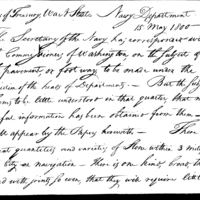 of Treasury War & State Navy Department
15 May 1800
The Secretary of the Navy has correspon
Commissioners of Washington on the subject of
pavement or foot way to be made under the
of the heads of Departments. — But the sub
to be little understood in that quarter that
ful information has been obtained from them —
appear by the Papers herewith — There
at quantities and varieties of Stone within 3 mil
city or navigation — There is one kind
with joints so even, that they will require little